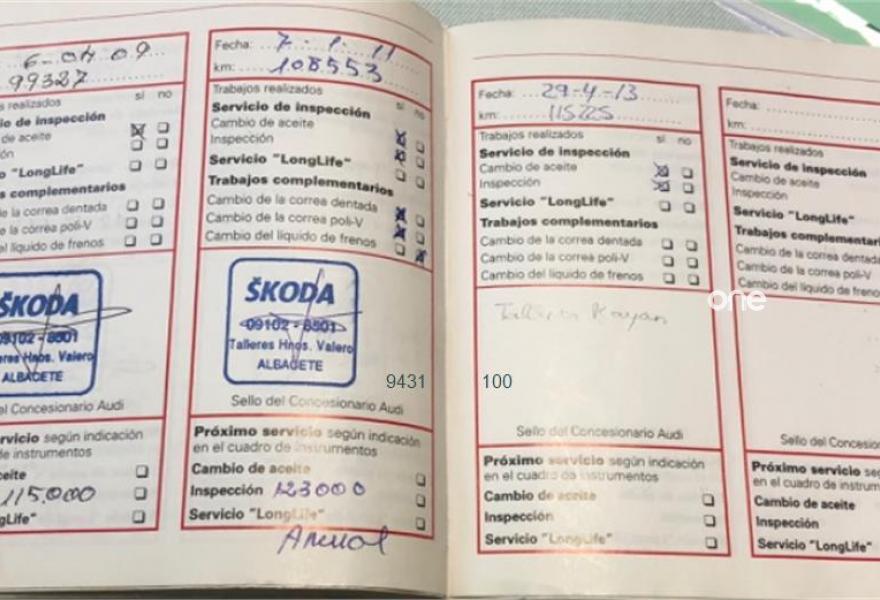 6-04-09
99327
s realizados
sí no
io de inspección
de aceite
ón
o "LongLife"
s complementarios
de la correa dentada
e la correa poli-V
el líquido de frenos
ŠKODA
09102 - 8501
eres Hnos. Valero
ALBACETE
el Concesionario Audi
rvicio según indicación
de instrumentos
ceite
115,000
gLife"
Fecha: 7-1-11
km: 108553
Trabajos realizados
sí no
Servicio de inspección
Cambio de aceite
Inspección
Servicio "LongLife"
Trabajos complementarios
Cambio de la correa dentada
Cambio de la correa poli-V
Cambio del líquido de frenos
ŠKODA
09102 - 8501
Talleres Hnos. Valero
ALBACETE
9431
Sello del Concesionario Audi
Próximo servicio según indicación
en el cuadro de instrumentos
Cambio de aceite
Inspección 123000
Servicio "LongLife"
Anual
Fecha: 29-4-13
km: 115225
Trabajos realizados
sí no
Servicio de inspección
Cambio de aceite
Inspección
Servicio "LongLife"
Trabajos complementarios
Cambio de la correa dentada
Cambio de la correa poli-V
Cambio del líquido de frenos
one
Talleres
100
Sello del Concesionario Audi
Próximo servicio según indicación
en el cuadro de instrumentos
Cambio de aceite
Inspección
Servicio "LongLife"
Fecha:
km:
Trabajos realizados
Servicio de inspección
Cambio de aceite
Inspección
Servicio "LongLife"
Trabajos complementari
Cambio de la correa dentada
Cambio de la correa poli-V
Cambio del líquido de freno
Sello del Concesion
Próximo servicio seg
en el cuadro de instrum
Cambio de aceite
Inspección
Servicio "LongLife"